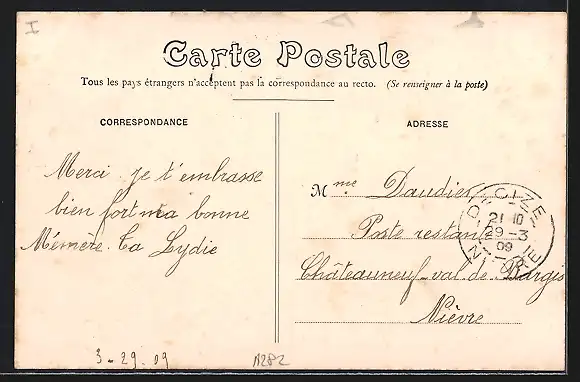 I
Carte Postale
Tous les pays étrangers n'acceptent pas la correspondance au recto. (Se renseigner à la poste)
CORRESPONDANCE
Merci je t'embrasse
bien fort ma bonne
Mémère. Ta Lydie
ADRESSE
Mme Daudier
Poste restante
Châteauneuf-val-de-Bargis
Nièvre
DECIZE
21-10
29-3
09
NIEVRE
3-29.09
A282